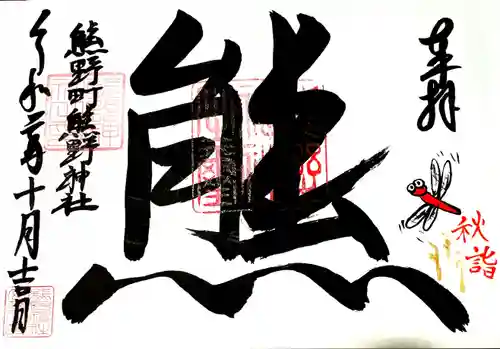 奉拝
秋詣
熊
熊野町熊野神社
令和二年十月十一日